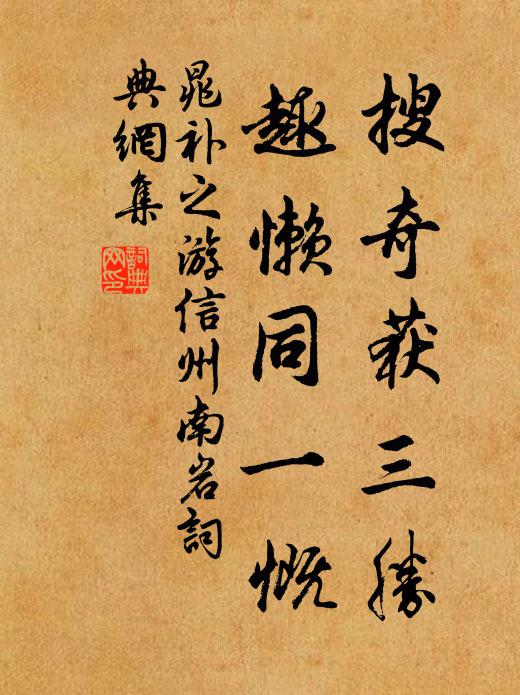 搜奇获三勝
趣懒同一慨
晁补之游信州南岩詞
典網集
詞典
网印